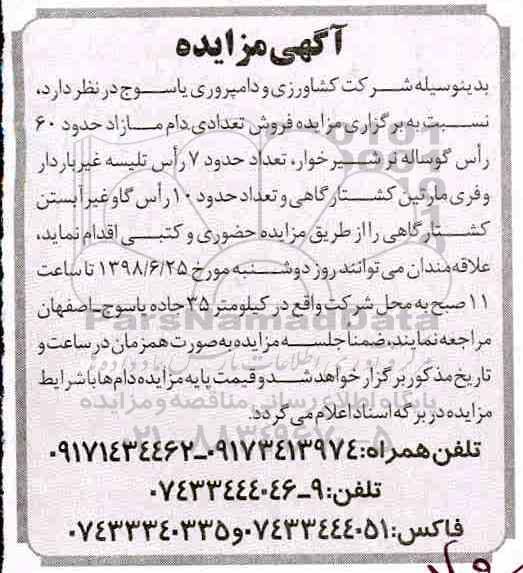 آگهی مزایده
بدینوسیله شرکت کشاورزی و دامپروری یاسوج در نظر دارد،
نسبت به برگزاری مزایده فروش تعدادی دام مازاد حدود ۶۰
رأس گوساله نر شیرخوار، تعداد حدود ۷ رأس تلیسه غیرباردار
و فری مارتین کشتارگاهی و تعداد حدود ۱۰ رأس گاو غیرآبستن
کشتارگاهی را از طریق مزایده حضوری و کتبی اقدام نماید،
علاقه‌مندان می‌توانند روز دوشنبه مورخ ۱۳۹۸/۶/۲۵ تا ساعت
۱۱ صبح به محل شرکت واقع در کیلومتر ۳۵ جاده یاسوج-اصفهان
مراجعه نمایند، ضمنا جلسه مزایده به صورت همزمان در ساعت و
تاریخ مذکور برگزار خواهد شد و قیمت پایه مزایده دام‌ها با شرایط
مزایده در برگه اسناد اعلام می‌گردد.
تلفن همراه: ۰۹۱۷۳۴۱۳۹۷۴-۰۹۱۷۱۴۳۴۴۶۲
تلفن: ۹-۰۷۴۳۳۴۴۴۰۴۶
فاکس: ۰۷۴۳۳۴۴۴۰۵۱ و ۰۷۴۳۳۳۴۰۳۳۵
ParsNamadData
پایگاه اطلاع رسانی مناقصه و مزایده
۰۲۱-۸۸۳۴۹۶۷۰-۵